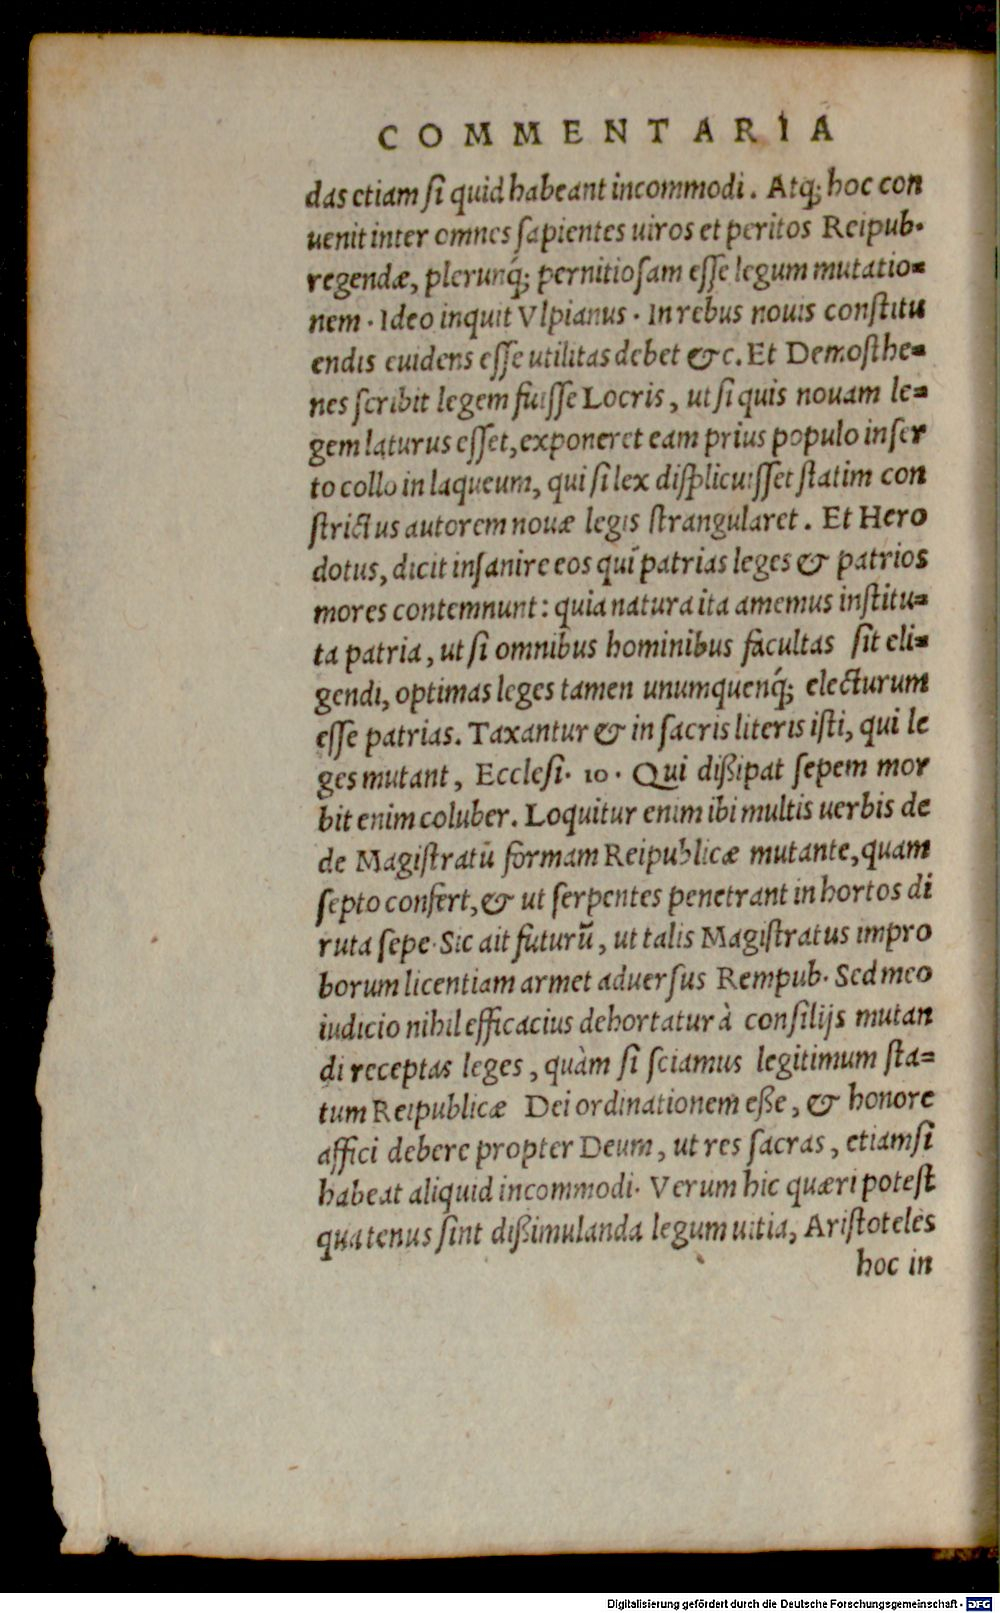 COMMENTARIA
das etiam ſi quid habeant incommodi. Atq; hoc con
uenit inter omnes ſapientes uiros et peritos Reipub.
regendæ, plerunq́; pernitioſam eſſe legum mutatio=
nem. Ideo inquit Vlpianus. In rebus nouis conſtitu
endis euidens eſſe utilitas debet &c. Et Demoſthe=
nes ſcribit legem fuiſſe Locris, ut ſi quis nouam le=
gem laturus eſſet, exponeret eam prius populo inſer
to collo in laqueum, qui ſi lex diſplicuiſſet ſtatim con
ſtrictus autorem nouæ legis ſtrangularet. Et Hero
dotus, dicit inſanire eos qui patrias leges & patrios
mores contemnunt: quia natura ita amemus inſtitu=
ta patria, ut ſi omnibus hominibus facultas ſit eli=
gendi, optimas leges tamen unumquenq́; electurum
eſſe patrias. Taxantur & in ſacris literis iſti, qui le
ges mutant, Eccleſi. 10. Qui dißipat ſepem mor
bit enim coluber. Loquitur enim ibi multis uerbis de
de Magiſtratũ formam Reipublicæ mutante, quam
ſepto confert, & ut ſerpentes penetrant in hortos di
ruta ſepe. Sic ait futurũ, ut talis Magiſtratus impro
borum licentiam armet aduerſus Rempub. Sed meo
iudicio nihil efficacius dehortatur à conſilijs mutan
di receptas leges, quàm ſi ſciamus legitimum ſta=
tum Reipublicæ Dei ordinationem eße, & honore
affici debere propter Deum, ut res ſacras, etiamſi
habeat aliquid incommodi. Verum hic quæri poteſt
quatenus ſint dißimulanda legum uitia, Ariſtoteles
hoc in
Digitalisierung gefördert durch die Deutsche Forschungsgemeinschaft - DFG